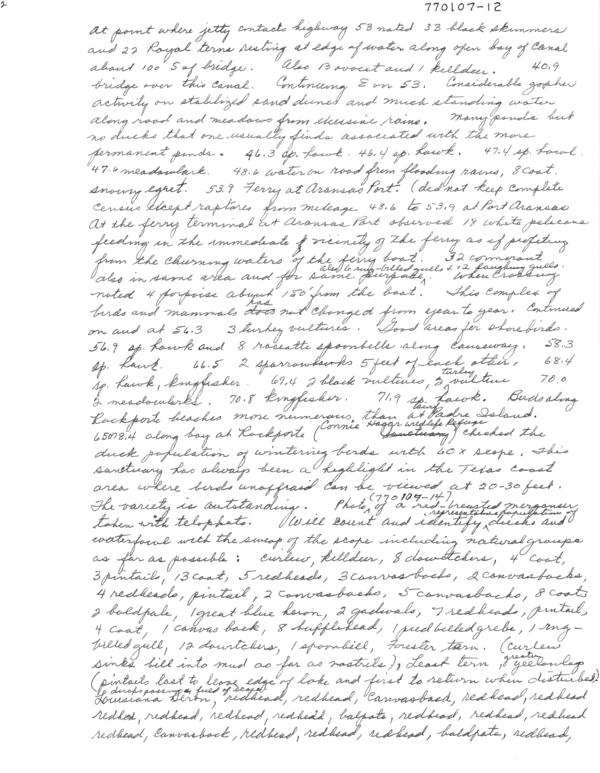 2
770107-12
At point where jetty contacts highway 53 noted 33 black skimmers
and 22 Royal terns resting at edge of water along open bay of canal
about 100' S of bridge. Also 13 avocet and 1 killdeer. 40.9
bridge over this canal. Continuing E on 53. Considerable gopher
activity on stabilized sand dunes and much standing water
along road and meadows from excessive rains. Many ponds but
no ducks that one usually finds associated with the more
permanent ponds. 46.3 sp. hawk. 46.4 sp. hawk. 47.4 sp. hawk.
47.6 meadowlark. 48.6 water on road from flooding rains, 8 coot.
snowy egret. 53.9 Ferry at Aransas Port. (did not keep complete
census except raptores from mileage 48.6 to 53.9 at Port Aransas
At the ferry terminal at Aransas Port observed 18 white pelicans
feeding in the immediate vicinity of the ferry as if profiting
from the churning waters of the ferry boat. 32 cormorant
also 6 ring-billed gulls & 12 laughing gulls.
also in same area and for same purpose. When crossing
noted 4 porpoise about 150' from the boat. This complex of
birds and mammals has not changed from year to year. Continued
on and at 56.3 3 turkey vultures. Good areas for shorebirds.
56.9 sp. hawk and 8 roseatte spoonbills along causeway. 58.3
sp. hawk. 66.5 2 sparrowhawks 5 feet of each other, 68.4
sp. hawk, kingfisher. 69.4 2 black vultures, 2 turkey vulture 70.0
2 meadowlarks. 70.8 kingfisher. 71.9 sp. hawk. Birds along
Rockporte beaches more numerous than at Padre Island.
65078.4 along bay at Rockporte (Connie Hagar Wildlife Refuge
Sanctuary) checked the
duck population of wintering birds with 60x scope. This
sanctuary has always been a highlight in the Texas coast
area where birds unaffraid can be viewed at 20-30 feet.
The variety is outstanding. Photo (770107-14) of a red-breasted merganser
taken with telephoto. Will count and identify representative population of ducks and
waterfowl with the sweep of the scope including natural groups
as far as possible: curlew, killdeer, 8 dowitchers, 4 coot,
3 pintails, 13 coot, 5 redheads, 3 canvasbacks, 2 canvasbacks,
4 redheads, pintail, 2 canvasbacks, 5 canvasbacks, 8 coots
2 baldpate, 1 great blue heron, 2 gadwals, 7 redheads, pintail,
4 coot, 1 canvasback, 8 bufflehead, 1 pied billed grebe, 1 ring-
billed gull, 12 dowitchers, 1 spoonbill, Forester tern. (curlew
sinks bill into mud as far as nostrils), Least tern, greater yellowlegs
(pintails last to leave edge of lake and first to return when disturbed).
Louisiana Heron, redhead, redhead, canvasback, redhead, redhead
redhead, redhead, redhead, redhead, balpate, redhead, redhead, redhead
redhead, canvasback, redhead, redhead, redhead, baldpate, redhead,